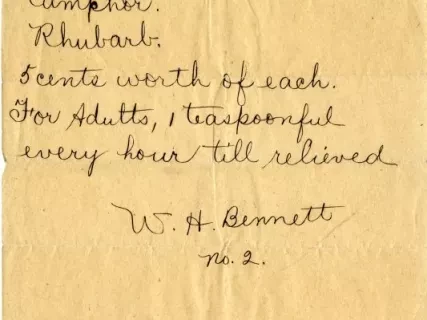 Camphor.
Rhubarb.
5 cents worth of each.
For Adutts, 1 teaspoonful
every hour till relieved
W. H. Bennett
No. 2.